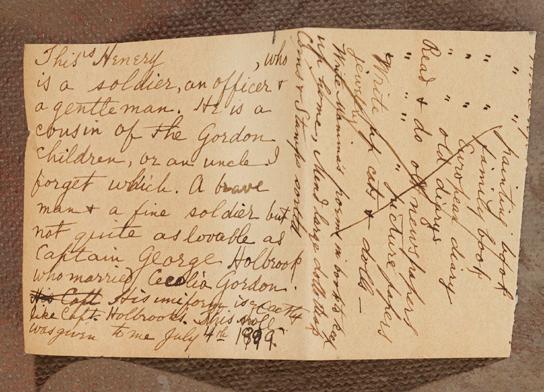 This is Henery , who
is a soldier, an officer +
a gentleman. He is a
cousin of the Gordon
children, or an uncle I
forget which. A brave
man + a fine soldier but
not quite as lovable as
Captain George Holbrook
who married Cecelia Gordon.
His Capt His uniform is exactly
like Capt. Holbrooks. This doll
was given to me July 4th 1899.
" " painting book
" " family book
" " European diary
" " old diarys
Read + do old newspapers
" " " " picture papers
Write for cats + dolls —
jewelry
Write Mamma's poems in book
up home, + large doll
Coins & Stamps and